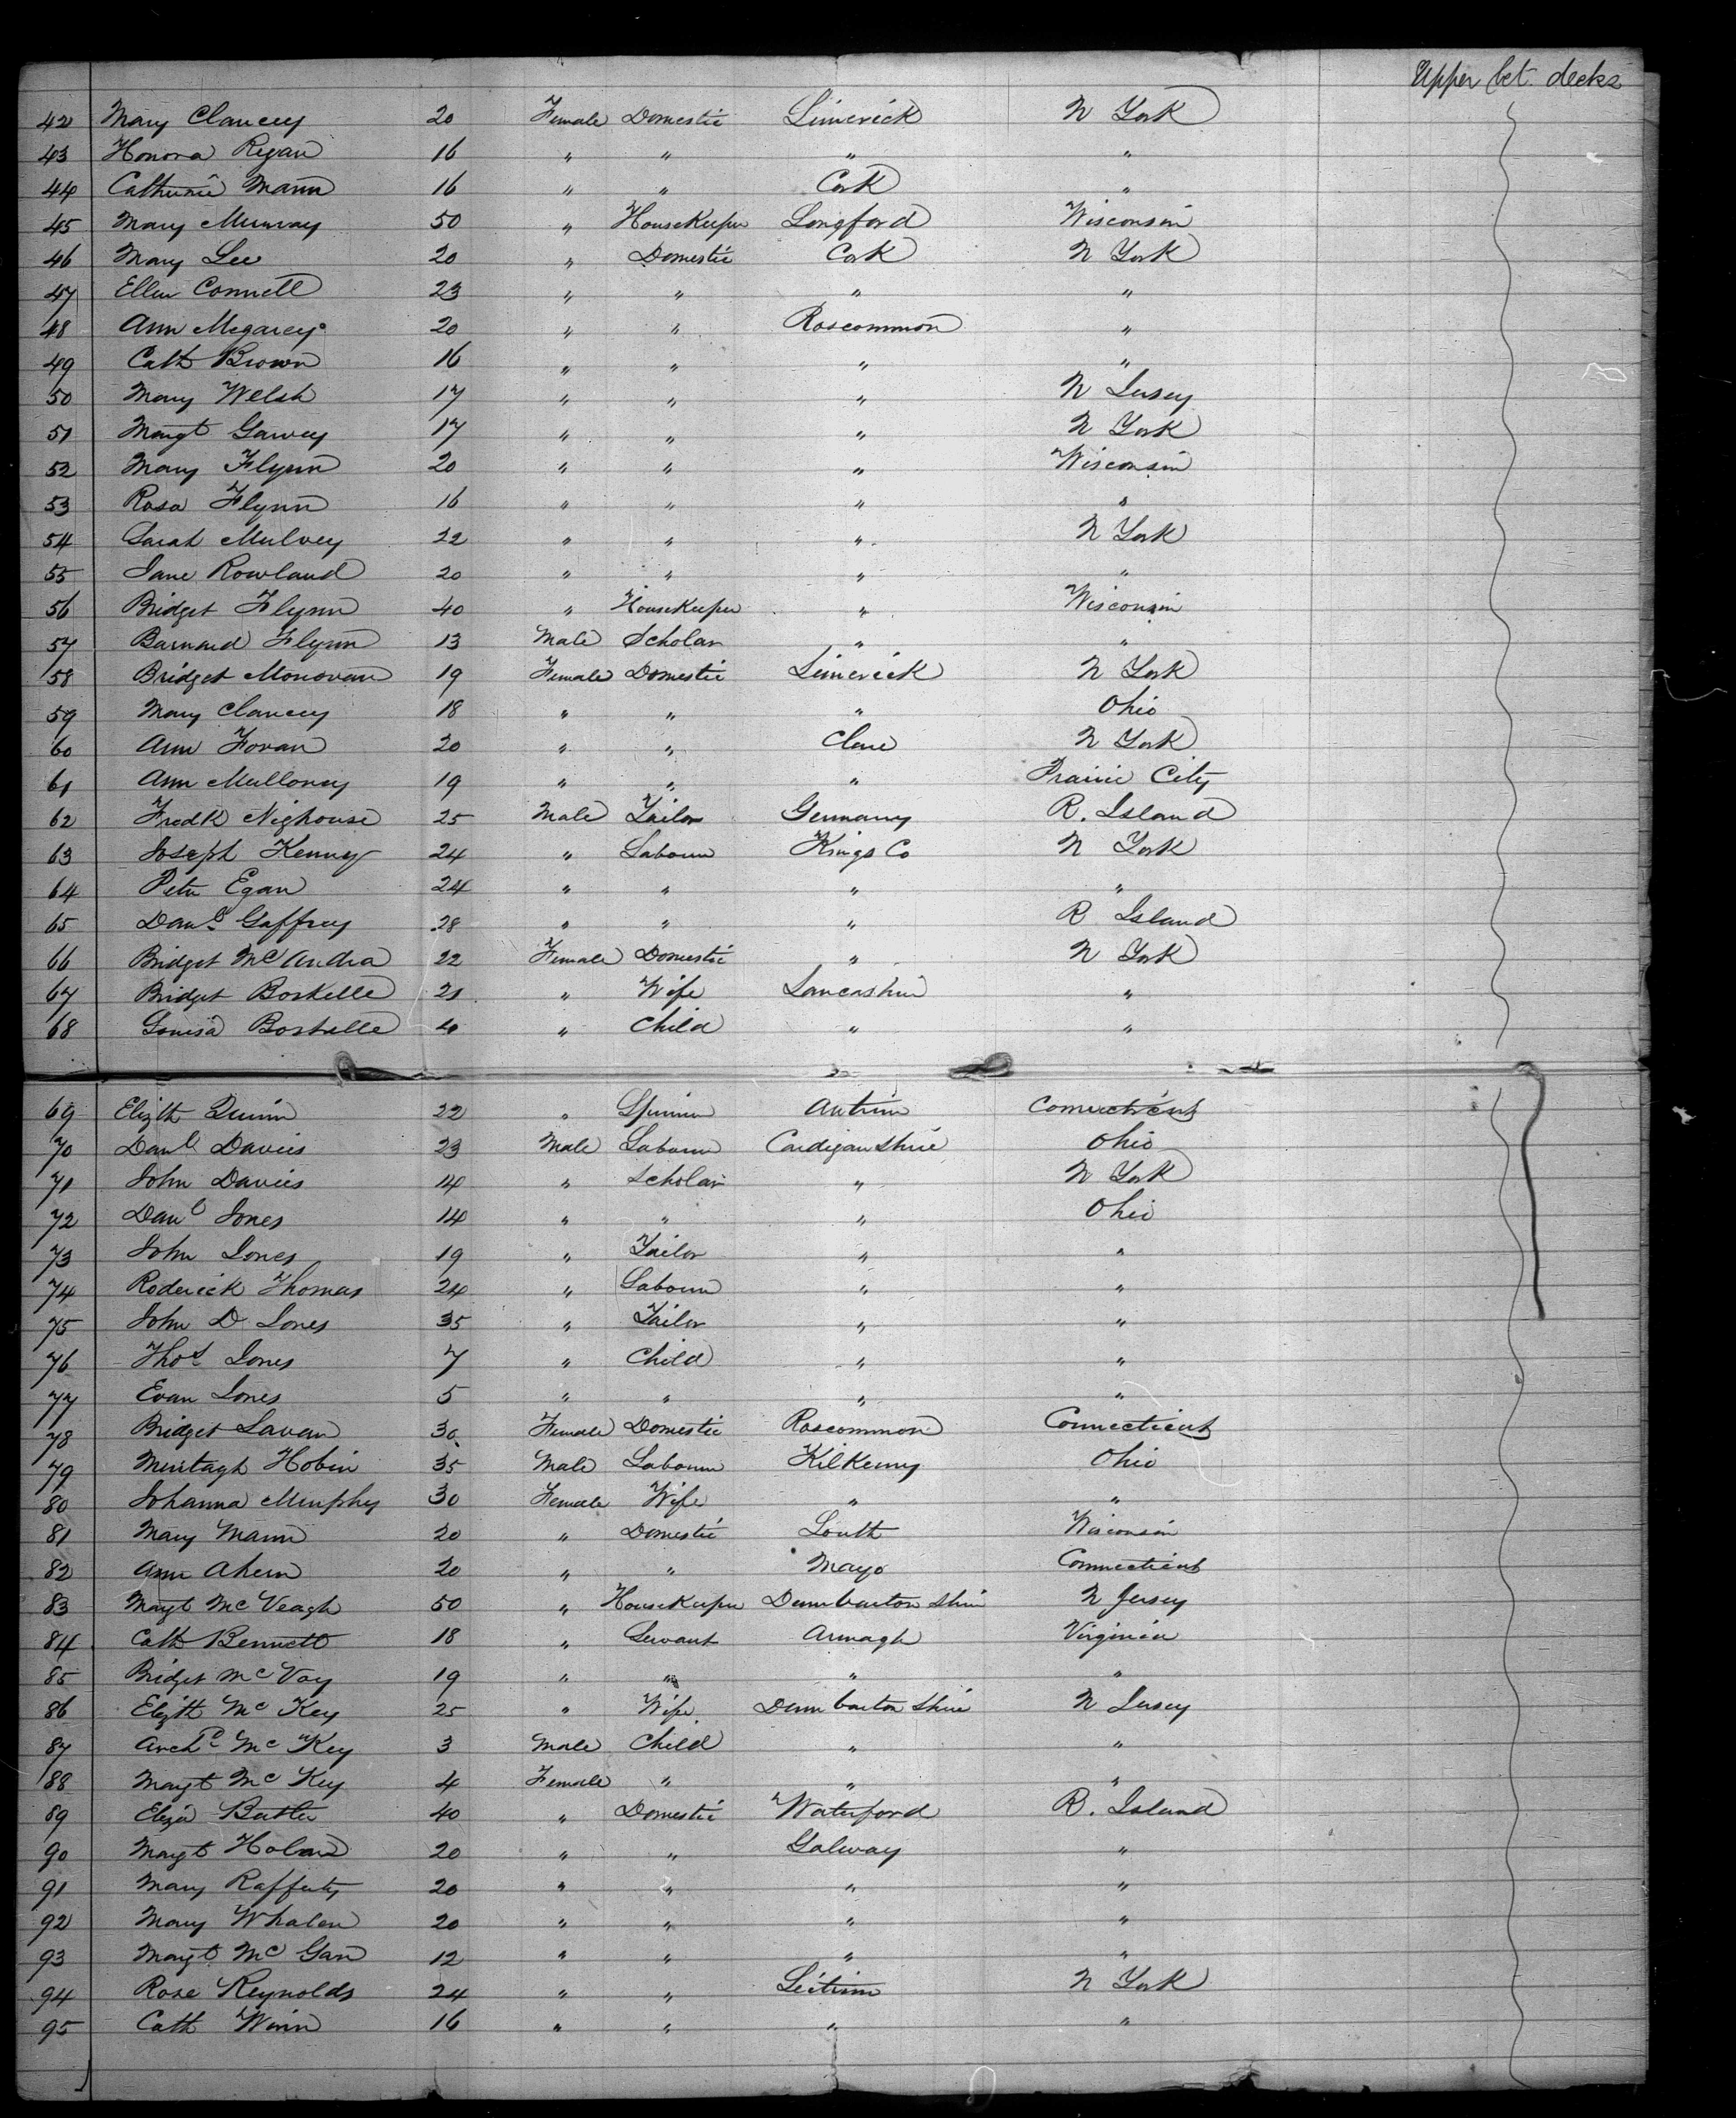 Upper bet. decks
42 Mary Clancey 20 Female Domestic Limerick N York
43 Honora Regan 16 " " " "
44 Catherine Mann 16 " " Cork "
45 Mary Murray 50 " HouseKeeper Longford Wisconsin
46 Mary Lee 20 " Domestic Cork N York
47 Ellen Connell 23 " " " "
48 Ann Megarey 20 " " Roscommon "
49 Cath Brown 16 " " " "
50 Mary Welsh 17 " " " N Jersey
51 Margt Garvey 17 " " " N York
52 Mary Flynn 20 " " " Wisconsin
53 Rosa Flynn 16 " " " "
54 Sarah Mulvey 22 " " " N York
55 Jane Rowland 20 " " " "
56 Bridget Flynn 40 " HouseKeeper " Wisconsin
57 Barnard Flynn 13 Male Scholar " "
58 Bridget Monovan 19 Female Domestic Limerick N York
59 Mary Clancey 18 " " " Ohio
60 Ann Foran 20 " " Clare N York
61 Ann Mulloney 19 " " " Prairie City
62 Fredk Nighouse 25 Male Tailor Germany R. Island
63 Joseph Kenney 24 " Labourer Kings Co N York
64 Peter Egan 24 " " " "
65 Danl Gaffrey 28 " " " R Island
66 Bridget McAndra 22 Female Domestic " N York
67 Bridget Boskelle 21 " Wife Lancashire "
68 Louisa Boskelle 4 " Child " "
69 Elizth Quinn 22 " Spinner Antrim Connecticut
70 Danl Davies 23 Male Labourer Cardiganshire Ohio
71 John Davies 14 " Scholar " N York
72 Danl Jones 14 " " " Ohio
73 John Jones 19 " Tailor " "
74 Roderick Thomas 24 " Labourer " "
75 John D Jones 35 " Tailor " "
76 Thos Jones 7 " Child " "
77 Evan Jones 5 " " " "
78 Bridget Lavan 30 Female Domestic Roscommon Connecticut
79 Murtagh Hobin 35 Male Labourer KilKenny Ohio
80 Johanna Murphy 30 Female Wife " "
81 Mary Mann 20 " Domestic Louth Wisconsin
82 Ann Ahern 20 " " Mayo Connecticut
83 Margt McVeagh 50 " HouseKeeper Dumbarton Shire N Jersey
84 Cath Bennett 18 " Servant Armagh Virginia
85 Bridget McVoy 19 " " " "
86 Elizth McKey 25 " Wife Dumbarton Shire N Jersey
87 Archd McKey 3 Male Child " "
88 Margt McKey 4 Female " " "
89 Eliza Butler 40 " Domestic Waterford R. Island
90 Margt Holan 20 " " Galway "
91 Mary Rafferty 20 " " " "
92 Mary Whalen 20 " " " "
93 Margt McGan 12 " " " "
94 Rose Reynolds 24 " " Leitrim N York
95 Cath Winn 16 " " " "